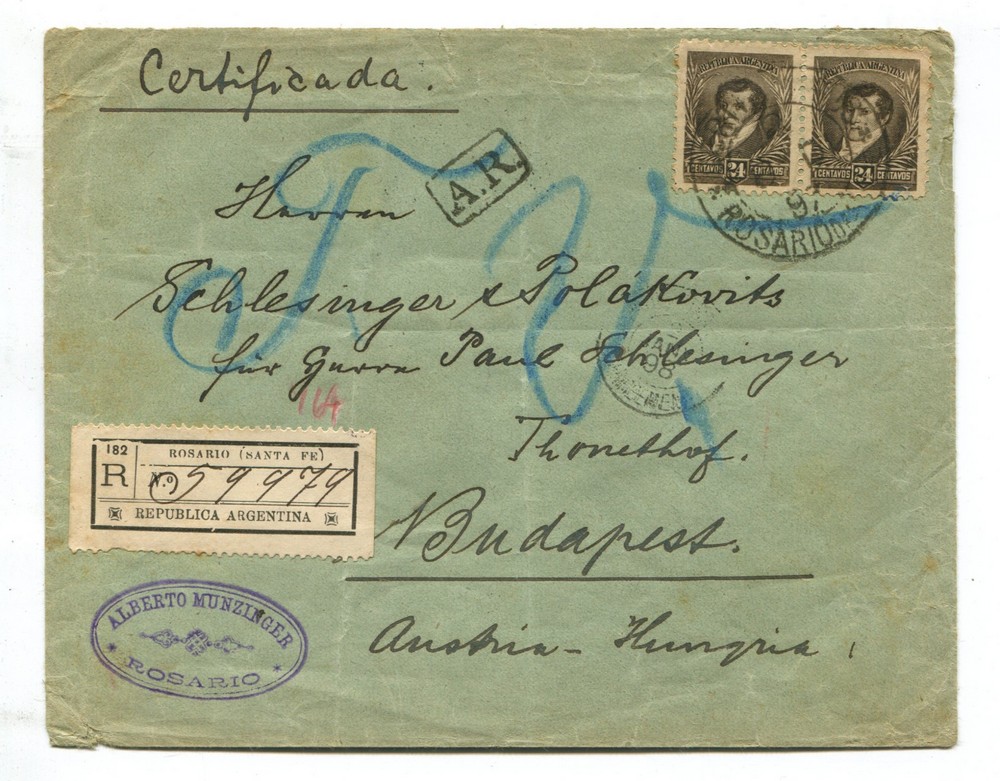 Certificada.
REPUBLICA ARGENTINA
CENTAVOS 24 CENTAVOS
REPUBLICA ARGENTINA
CENTAVOS 24 CENTAVOS
97
ROSARIO
A.R
Herren
Schlesinger & Polákovits
für Herrn Paul Schlesinger
98
164
Thonethof.
182
ROSARIO (SANTA FE)
R
N.o 59979
REPUBLICA ARGENTINA
Budapest.
ALBERTO MUNZINGER
ROSARIO
Austria-Hungria